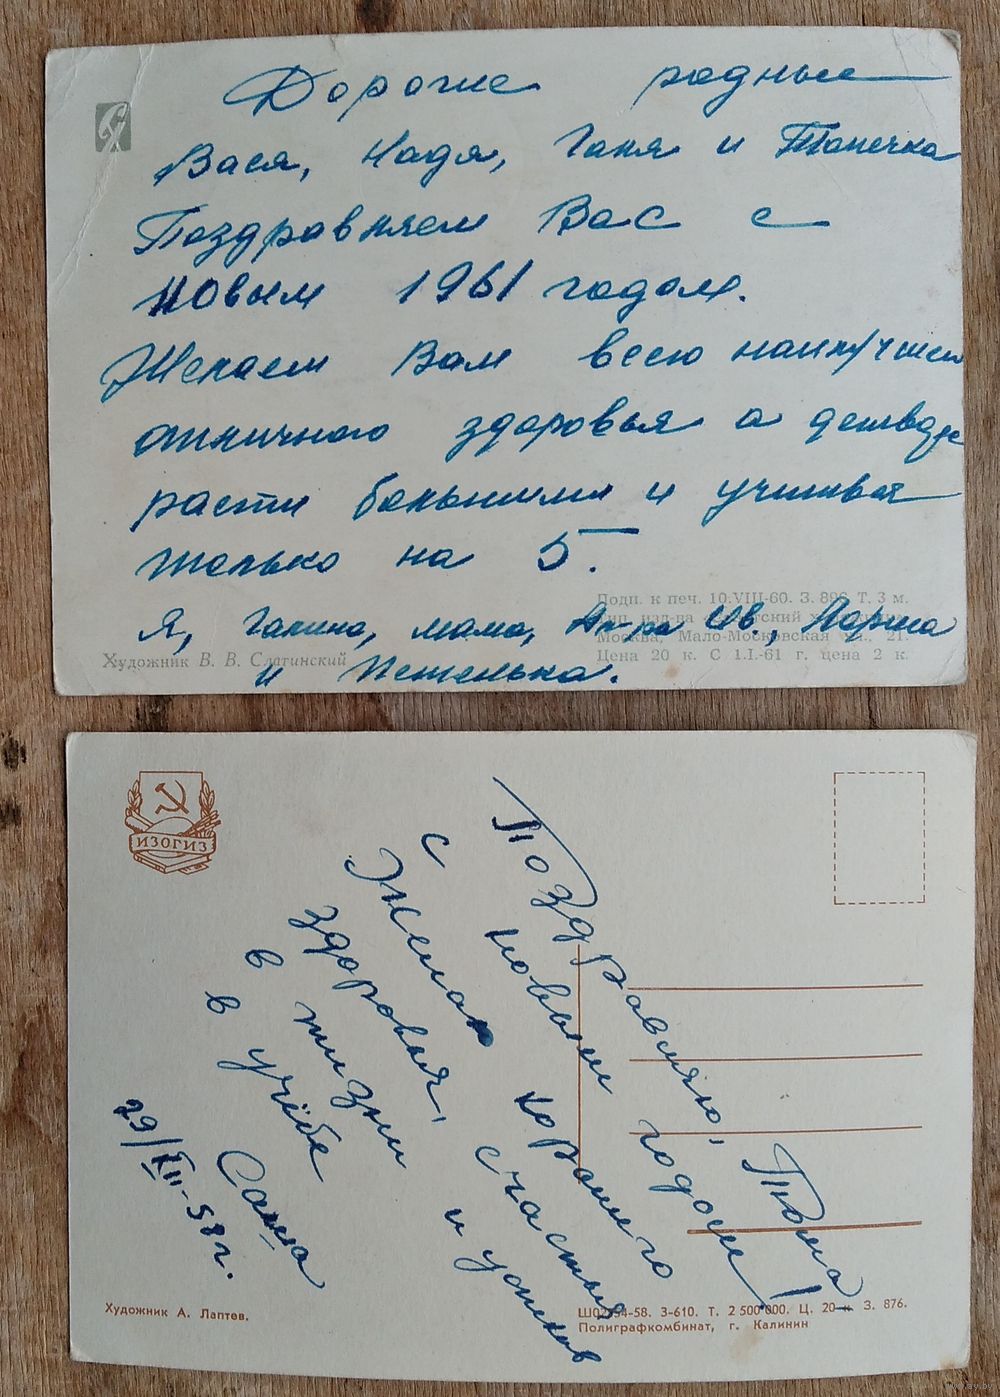 Дорогие родные
Вася, Надя, Галя и Танечка
Поздравляем Вас с
новым 1961 годом.
Желаем Вам всего наилучшего
отличного здоровья а
расти большими и учиться
только на 5.
Я, Галина, мама, Ив, Лариса
и Петенька.
Художник В. В. Слатинский
Подп. к печ. 10.VIII-60. З. 896. Т. 3 м.
Тип. изд-ва
Москва, Мало-Московская ул., 21.
Цена 20 к. С 1.I.-61 г. цена 2 к.
ИЗОГИЗ
Поздравляю, Тома!
с новым годом!
Желаю хорошего
здоровья, счастья
в жизни и успехов
в учёбе
Саша
29/XII-58 г.
Художник А. Лаптев.
-58. З-610. Т. 2 500 000. Ц. 20 к. З. 876.
Полиграфкомбинат, г. Калинин